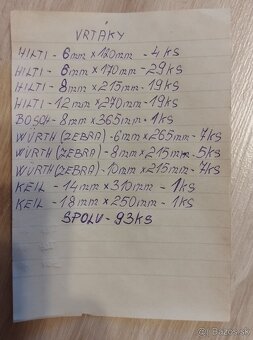 VRTÁKY
HILTI - 6mm x 120mm - 4KS
HILTI - 6mm x 170mm - 29KS
HILTI - 8mm x 215mm - 19KS
HILTI - 12mm x 270mm - 19KS
BOSCH - 8mm x 365mm - 1KS
WÜRTH (ZEBRA) - 6mm x 265mm - 7KS
WÜRTH (ZEBRA) - 8mm x 215mm - 5KS
WÜRTH (ZEBRA) - 10mm x 215mm - 7KS
KEIL - 14mm x 310mm - 1KS
KEIL - 18mm x 250mm - 1KS
SPOLU - 93KS
bazos.sk